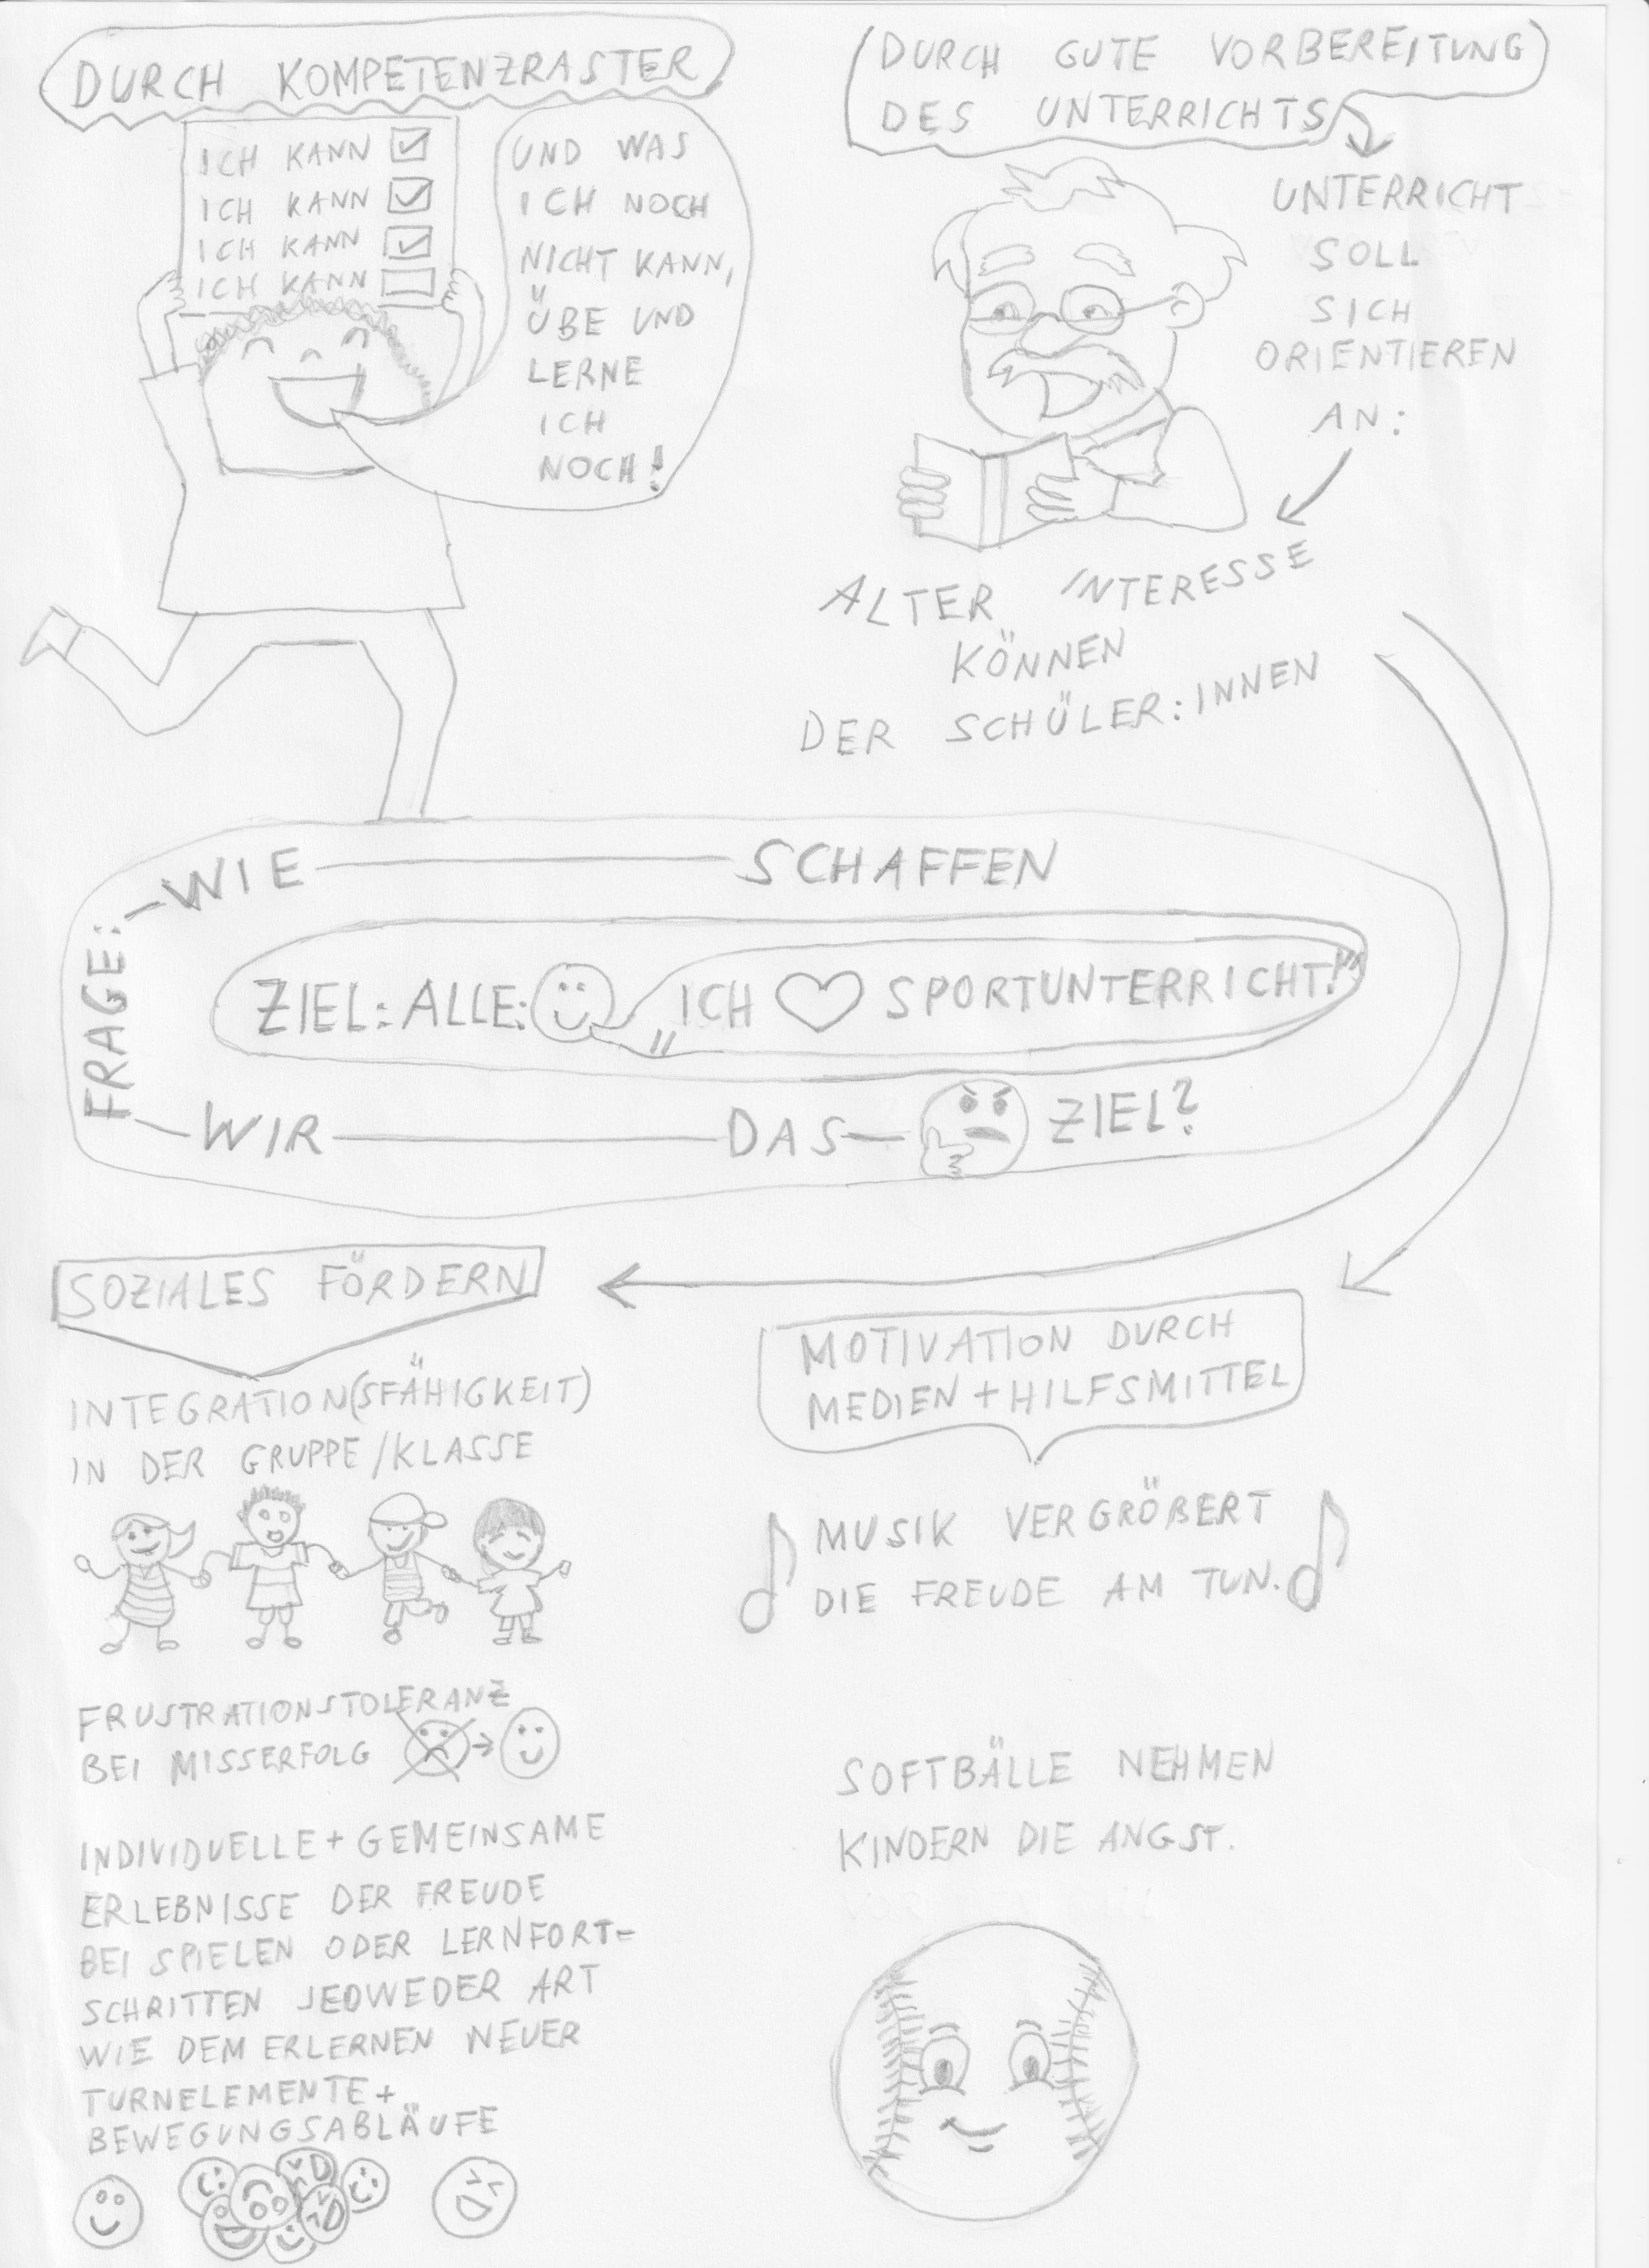 DURCH KOMPETENZRASTER
ICH KANN
ICH KANN
ICH KANN
ICH KANN
UND WAS
ICH NOCH
NICHT KANN,
ÜBE UND
LERNE
ICH
NOCH!
DURCH GUTE VORBEREITUNG
DES UNTERRICHTS
UNTERRICHT
SOLL
SICH
ORIENTIEREN
AN:
ALTER INTERESSE
KÖNNEN
DER SCHÜLER:INNEN
FRAGE:
WIE SCHAFFEN
ZIEL: ALLE: „ICH ♡ SPORTUNTERRICHT!“
WIR DAS ZIEL?
SOZIALES FÖRDERN
INTEGRATION(SFÄHIGKEIT)
IN DER GRUPPE/KLASSE
FRUSTRATIONSTOLERANZ
BEI MISSERFOLG
INDIVIDUELLE + GEMEINSAME
ERLEBNISSE DER FREUDE
BEI SPIELEN ODER LERNFORT-
SCHRITTEN JEDWEDER ART
WIE DEM ERLERNEN NEUER
TURNELEMENTE +
BEWEGUNGSABLÄUFE
MOTIVATION DURCH
MEDIEN + HILFSMITTEL
MUSIK VERGRÖßERT
DIE FREUDE AM TUN.
SOFTBÄLLE NEHMEN
KINDERN DIE ANGST.